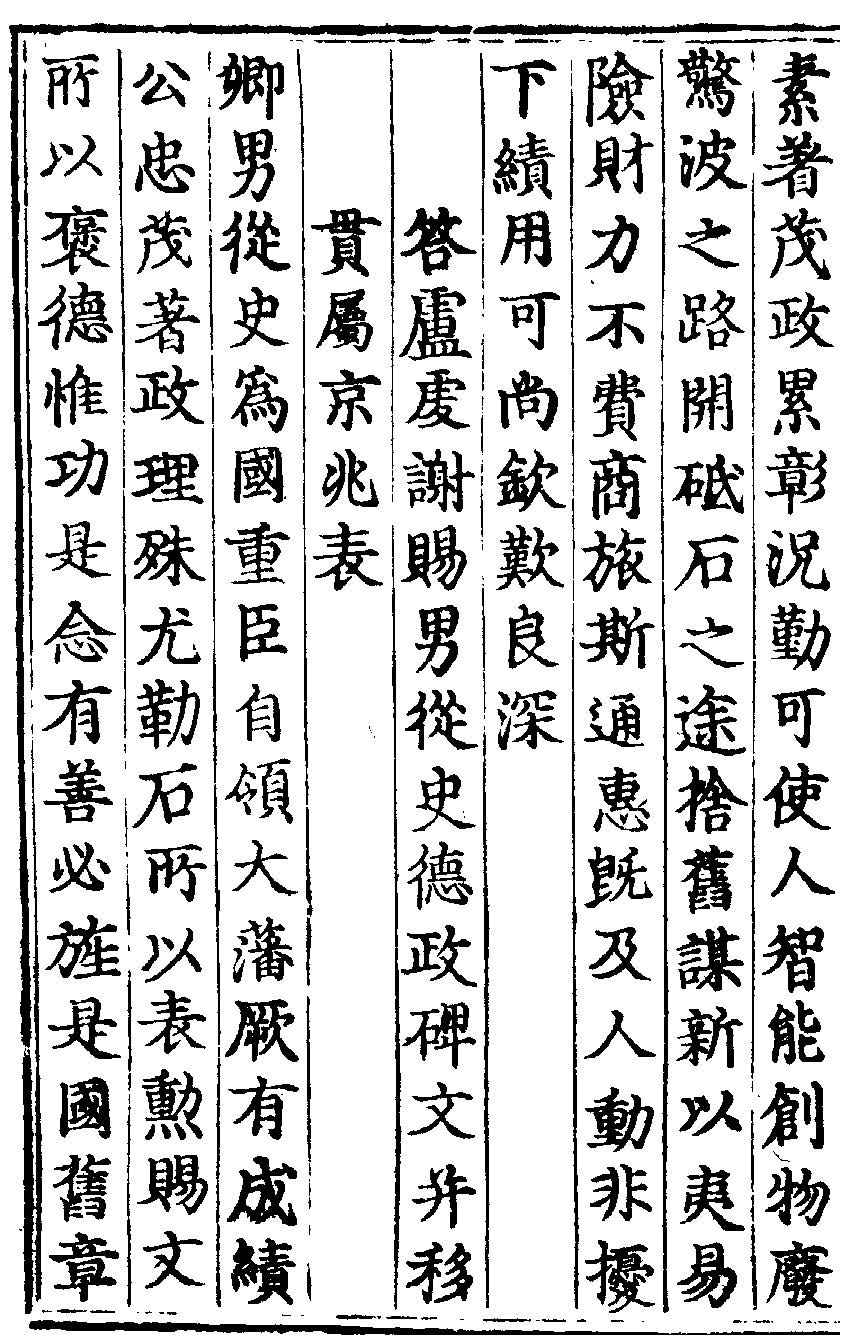 素著茂政累彰況勤可使人智能創物廢
驚波之路開砥石之途捨舊謀新以夷易
險財力不費商旅斯通惠既及人動非擾
下績用可尚欽歎良深
答盧虔謝賜男從史德政碑文并移
貫屬京兆表
卿男從史爲國重臣自領大藩厥有成績
公忠茂著政理殊尤勒石所以表勲賜文
所以褒德惟功是念有善必旌是國舊章